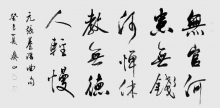 無官何
患無錢
何憚休
教無德
人輕慢
元張養浩曲句